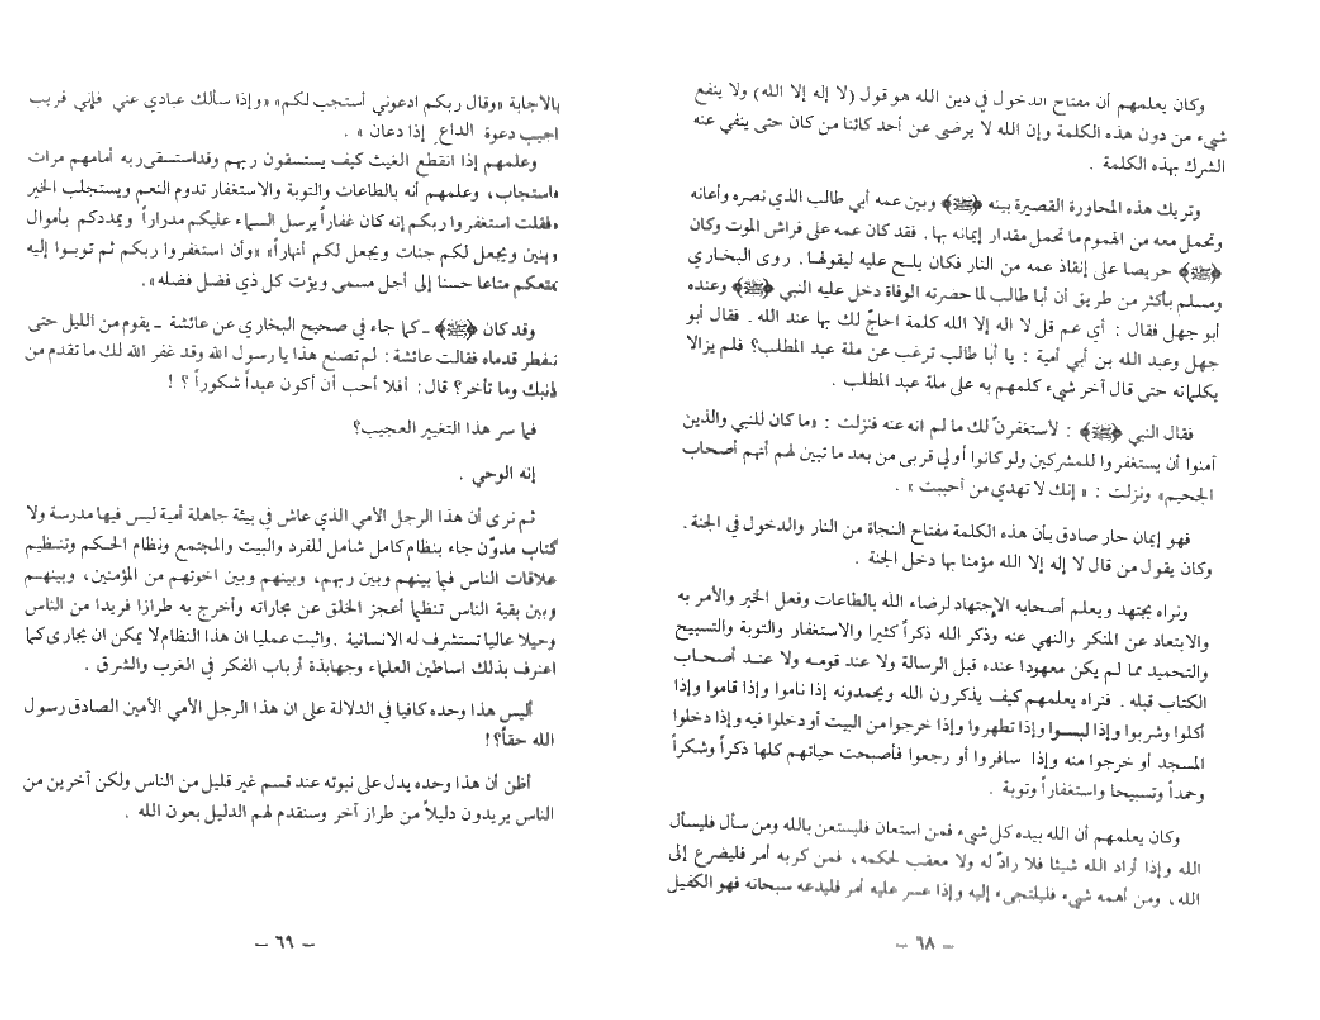 وكان يعلمهم أن مفتاح الدخول في دين الله هو قول (لا إله إلا الله) ولا ينفع
شيء من دون هذه الكلمة وإن الله لا يرضى عن أحد كائنا من كان حتى ينفي عنه
الشرك بهذه الكلمة .
وتريك هذه المحاورة القصيرة بينه ﴿ﷺ﴾ وبين عمه أبي طالب الذي نصره وأعانه
وتحمل معه من الهموم ما تحمل مقدار إيمانه بها. فقد كان عمه على فراش الموت وكان
﴿ﷺ﴾ حريصا على إنقاذ عمه من النار فكان يلح عليه ليقولها. روى البخاري
ومسلم بأكثر من طريق أن أبا طالب لما حضرته الوفاة دخل عليه النبي ﴿ﷺ﴾ وعنده
أبو جهل فقال : أي عم قل لا اله إلا الله كلمة احاجّ لك بها عند الله . فقال أبو
جهل وعبد الله بن أبي أمية : يا أبا طالب ترغب عن ملة عبد المطلب؟ فلم يزالا
يكلمانه حتى قال آخر شيء كلمهم به على ملة عبد المطلب .
فقال النبي ﴿ﷺ﴾ : لأستغفرنّ لك ما لم انه عنه فنزلت : «ما كان للنبي والذين
آمنوا أن يستغفروا للمشركين ولو كانوا أولي قربى من بعد ما تبين لهم أنهم أصحاب
الجحيم» ونزلت : « إنك لا تهدي من أحببت » .
فهو إيمان حار صادق بأن هذه الكلمة مفتاح النجاة من النار والدخول في الجنة .
وكان يقول من قال لا إله إلا الله مؤمنا بها دخل الجنة .
ونراه مجتهد ويعلم أصحابه الإجتهاد لرضاء الله بالطاعات وفعل الخير والأمر به
والابتعاد عن المنكر والنهي عنه وذكر الله ذكراً كثيرا والاستغفار والتوبة والتسبيح
والتحميد مما لم يكن معهودا عنده قبل الرسالة ولا عند قومه ولا عند أصحاب
الكتاب قبله . فنراه يعلمهم كيف يذكرون الله ويحمدونه إذا ناموا وإذا قاموا وإذا
أكلوا وشربوا وإذا لبسوا وإذا تطهروا وإذا خرجوا من البيت أو دخلوا فيه وإذا دخلوا
المسجد أو خرجوا منه وإذا سافروا أو رجعوا فأصبحت حياتهم كلها ذكراً وشكراً
وحمداً وتسبيحا واستغفاراً وتوبة .
وكان يعلمهم أن الله بيده كل شيء فمن استعان فليستعن بالله ومن سأل فليسأل
الله وإذا أراد الله شيئا فلا رادّ له ولا معقب لحكمه، فمن كربه أمر فليضرع إلى
الله، ومن أهمه شيء فليلتجىء إليه وإذا عسر عليه أمر فليدعه سبحانه فهو الكفيل
– ٦٨ –
بالاجابة «وقال ربكم ادعوني أستجب لكم» «وإذا سألك عبادي عني فإني قريب
اجيب دعوة الداع إذا دعان » .
وعلمهم إذا انقطع الغيث كيف يستسقون ربهم وقداستسقى ربه أمامهم مرات
فاستجاب، وعلمهم أنه بالطاعات والتوبة والاستغفار تدوم النعم ويستجلب الخير
«فقلت استغفروا ربكم إنه كان غفاراً يرسل السماء عليكم مدراراً ويمددكم بأموال
وبنين ويجعل لكم جنات ويجعل لكم أنهاراً» «وأن استغفروا ربكم ثم توبوا إليه
يمتعكم متاعا حسنا إلى أجل مسمى ويؤت كل ذي فضل فضله» .
وقد كان ﴿ﷺ﴾ ـ كما جاء في صحيح البخاري عن عائشة ـ يقوم من الليل حتى
تنفطر قدماه فقالت عائشة : لم تصنع هذا يا رسول الله وقد غفر الله لك ما تقدم من
ذنبك وما تأخر؟ قال : أفلا أحب أن أكون عبداً شكوراً ؟ !
فما سر هذا التغيير العجيب؟
إنه الوحي .
ثم نرى أن هذا الرجل الأمي الذي عاش في بيئة جاهلة أمية ليس فيها مدرسة ولا
كتاب مدوّن جاء بنظام كامل شامل للفرد والبيت والمجتمع ونظام الحكم وتنظيم
علاقات الناس فيما بينهم وبين ربهم، وبينهم وبين اخوتهم من المؤمنين، وبينهم
وبين بقية الناس تنظيما أعجز الخلق عن مجاراته وأخرج به طرازا فريدا من الناس
وجيلا عاليا تستشرف له الانسانية . واثبت عمليا ان هذا النظام لا يمكن ان يجارى كما
اعترف بذلك اساطين العلماء وجهابذة أرباب الفكر في الغرب والشرق .
أليس هذا وحده كافيا في الدلالة على ان هذا الرجل الأمي الأمين الصادق رسول
الله حقاً؟!
أظن أن هذا وحده يدل على نبوته عند قسم غير قليل من الناس ولكن آخرين من
الناس يريدون دليلاً من طراز آخر وسنقدم لهم الدليل بعون الله .
– ٦٩ –